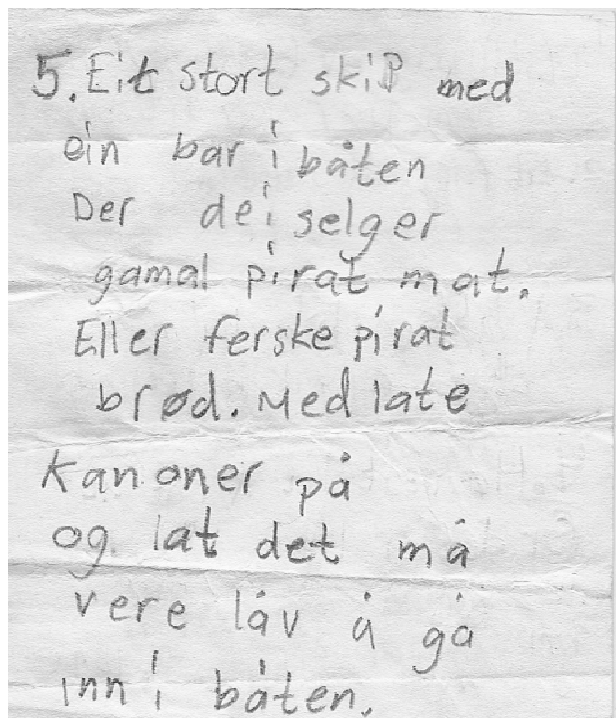 5. Eit stort skip med
ein bar i båten
Der dei selger
gamal pirat mat.
Eller ferske pirat
brød. Med late
kanoner på
og lat det må
vere låv å gå
inn i båten.